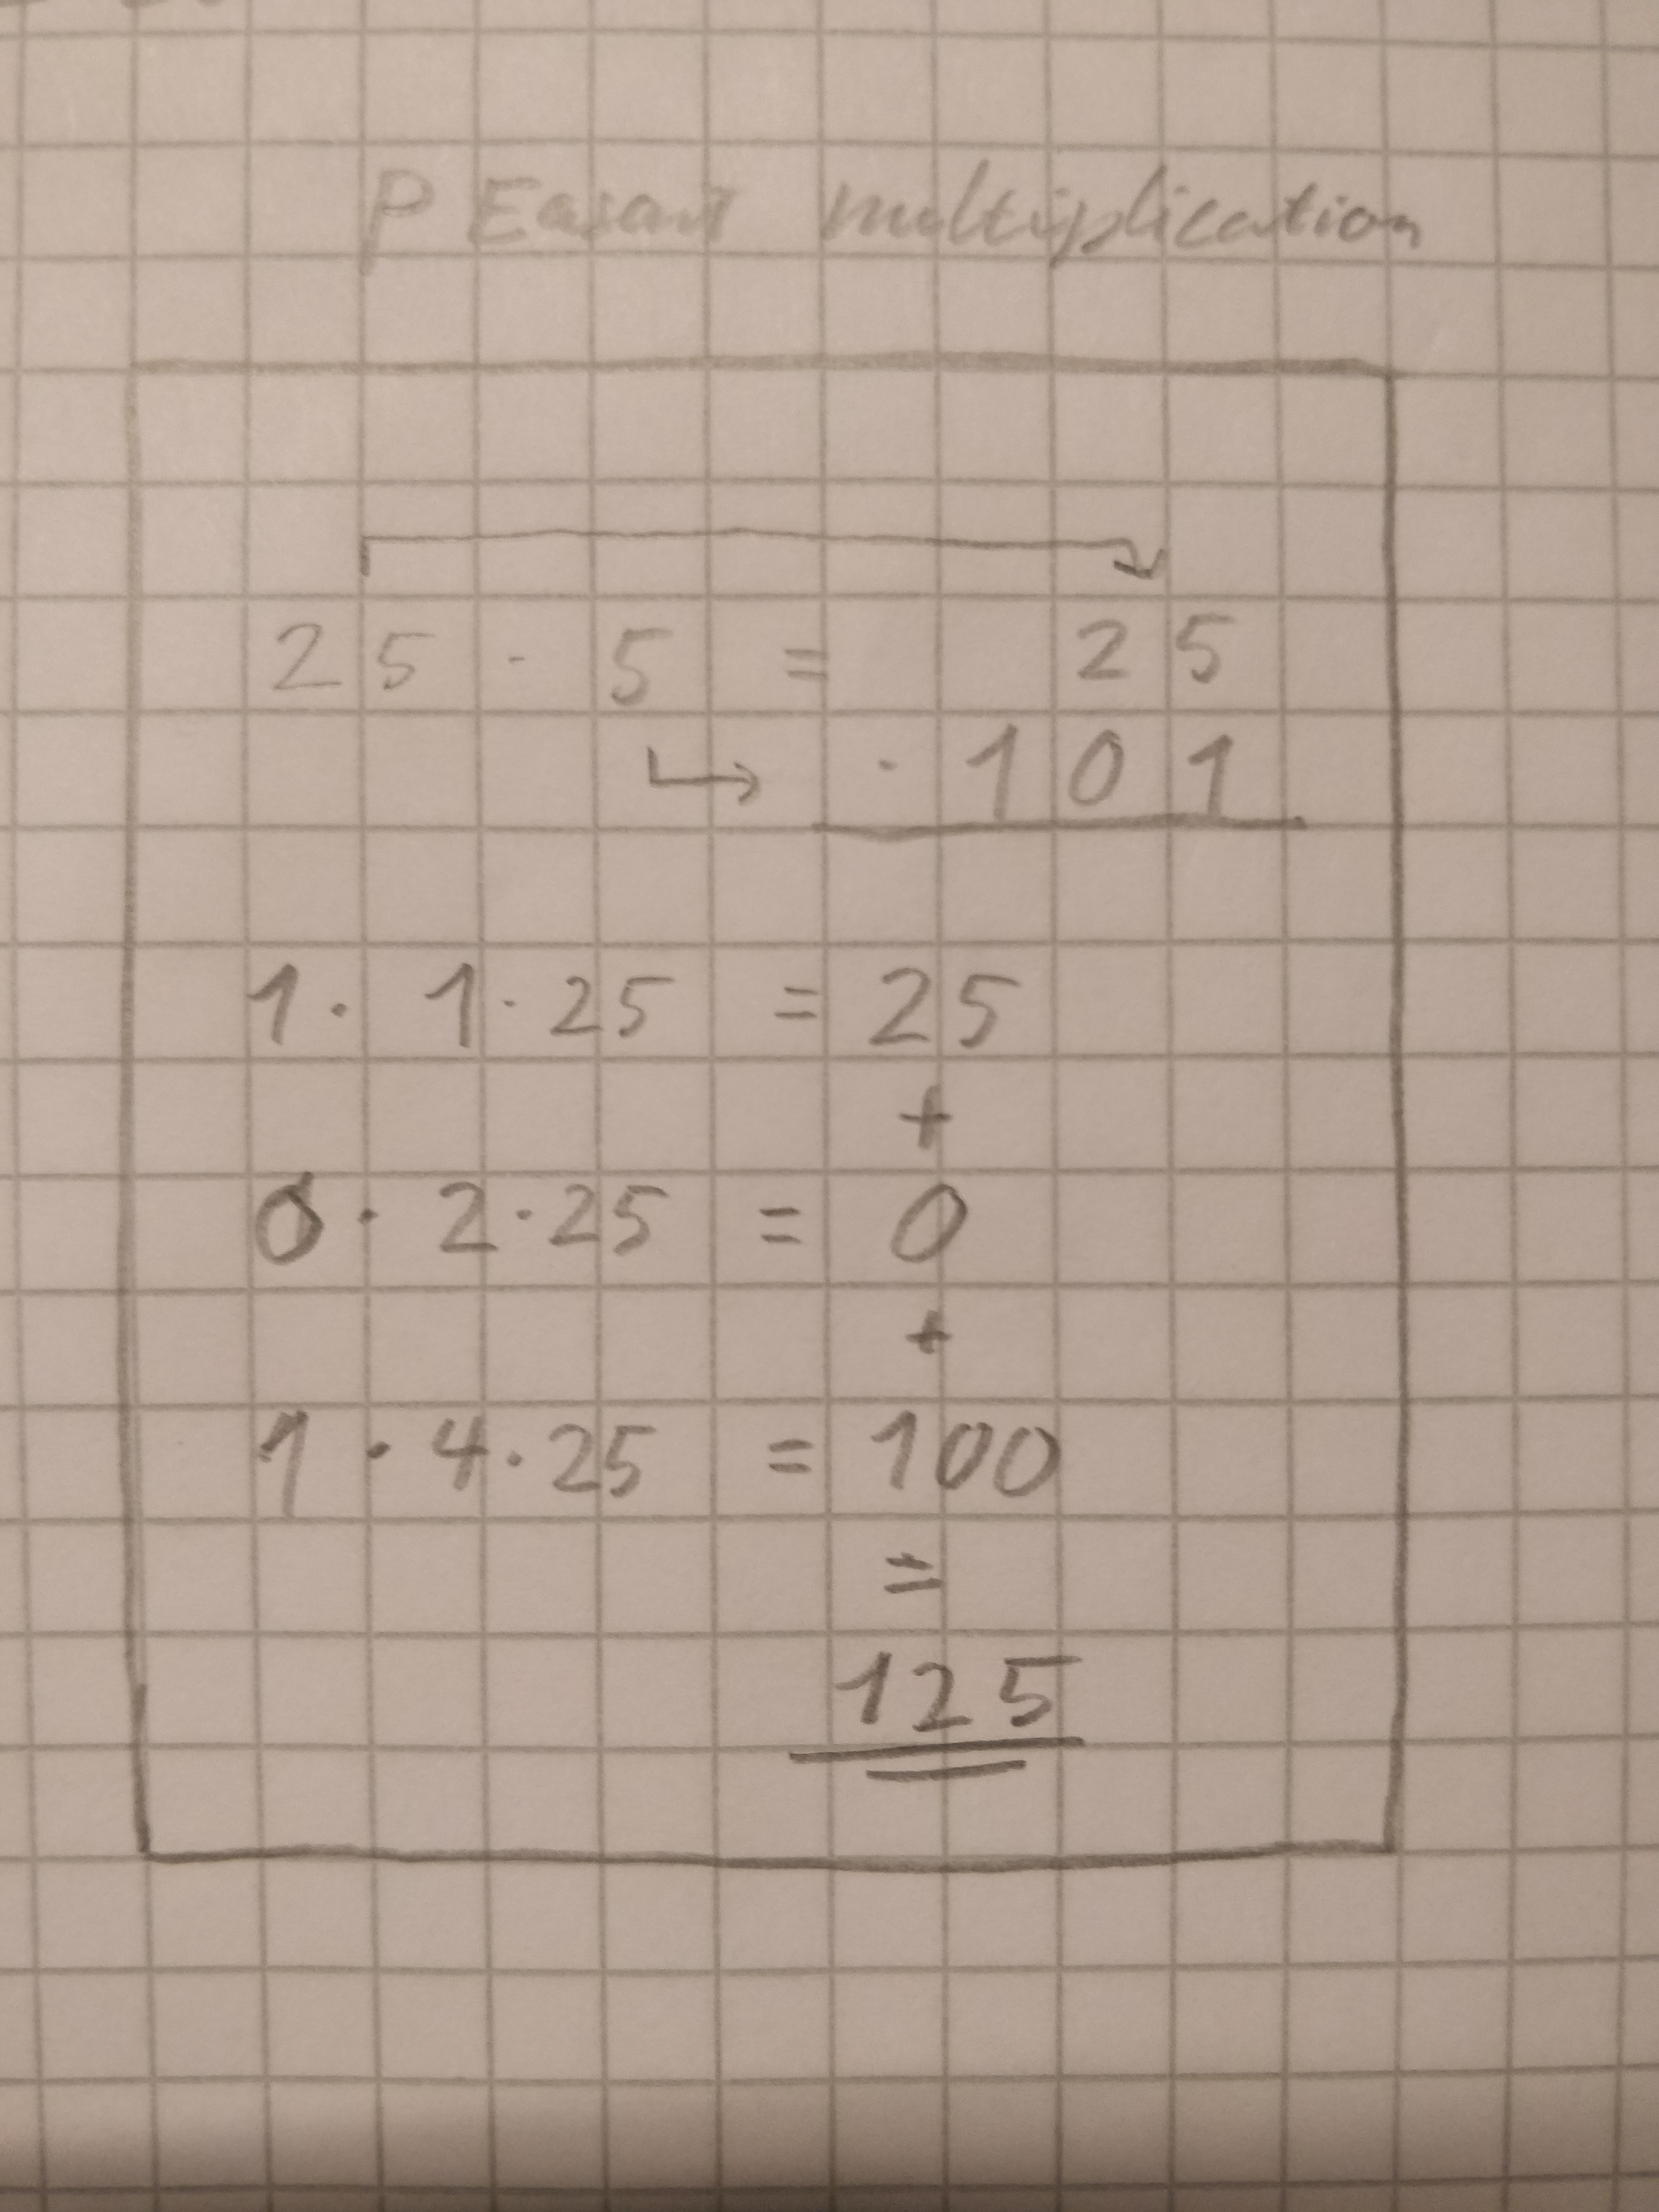 PEasant multiplication
25 · 5 = 25
· 101
1 · 1 · 25 = 25
+
0 · 2 · 25 = 0
+
1 · 4 · 25 = 100
=
125